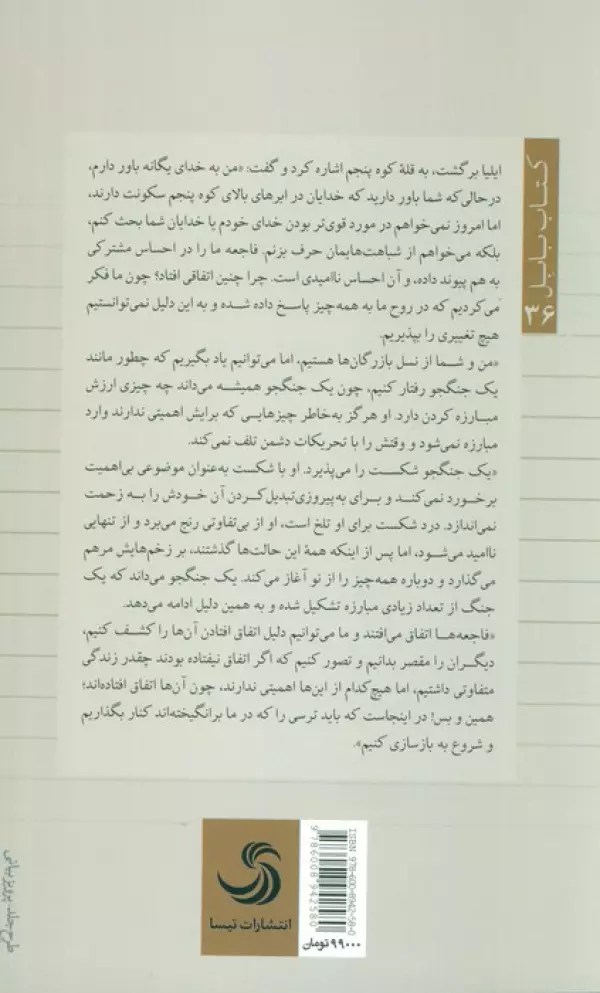 کتاب بابیل
۳۶
ایلیا برگشت، به قلهٔ کوه پنجم اشاره کرد و گفت: «من به خدای یگانه باور دارم،
درحالی‌که شما باور دارید که خدایان در ابرهای بالای کوه پنجم سکونت دارند،
اما امروز نمی‌خواهم در مورد قوی‌تر بودن خدای خودم یا خدایان شما بحث کنم،
بلکه می‌خواهم از شباهت‌هایمان حرف بزنم. فاجعه ما را در احساس مشترکی
به هم پیوند داده، و آن احساس ناامیدی است. چرا چنین اتفاقی افتاد؟ چون ما فکر
می‌کردیم که در روح ما به همه‌چیز پاسخ داده شده و به این دلیل نمی‌توانستیم
هیچ تغییری را بپذیریم.
«من و شما از نسل بازرگان‌ها هستیم، اما می‌توانیم یاد بگیریم که چطور مانند
یک جنگجو رفتار کنیم، چون یک جنگجو همیشه می‌داند چه چیزی ارزش
مبارزه کردن دارد. او هرگز به‌خاطر چیزهایی که برایش اهمیتی ندارند وارد
مبارزه نمی‌شود و وقتش را با تحریکات دشمن تلف نمی‌کند.
«یک جنگجو شکست را می‌پذیرد. او با شکست به‌عنوان موضوعی بی‌اهمیت
برخورد نمی‌کند و برای به‌پیروزی‌تبدیل‌کردن آن خودش را به زحمت
نمی‌اندازد. درد شکست برای او تلخ است، او از بی‌تفاوتی رنج می‌برد و از تنهایی
ناامید می‌شود، اما پس از اینکه همهٔ این حالت‌ها گذشتند، بر زخم‌هایش مرهم
می‌گذارد و دوباره همه‌چیز را از نو آغاز می‌کند. یک جنگجو می‌داند که یک
جنگ از تعداد زیادی مبارزه تشکیل شده و به همین دلیل ادامه می‌دهد.
«فاجعه‌ها اتفاق می‌افتند و ما می‌توانیم دلیل اتفاق افتادن آن‌ها را کشف کنیم،
دیگران را مقصر بدانیم و تصور کنیم که اگر اتفاق نیفتاده بودند چقدر زندگی
متفاوتی داشتیم، اما هیچ‌کدام از این‌ها اهمیتی ندارند، چون آن‌ها اتفاق افتاده‌اند؛
همین و بس! در اینجاست که باید ترسی را که در ما برانگیخته‌اند کنار بگذاریم
و شروع به بازسازی کنیم».
انتشارات تیسا
ISBN 978-600-8942-58-0
9786008942580
۹۹۰۰۰ تومان
طرح جلد: پرویز بیانی